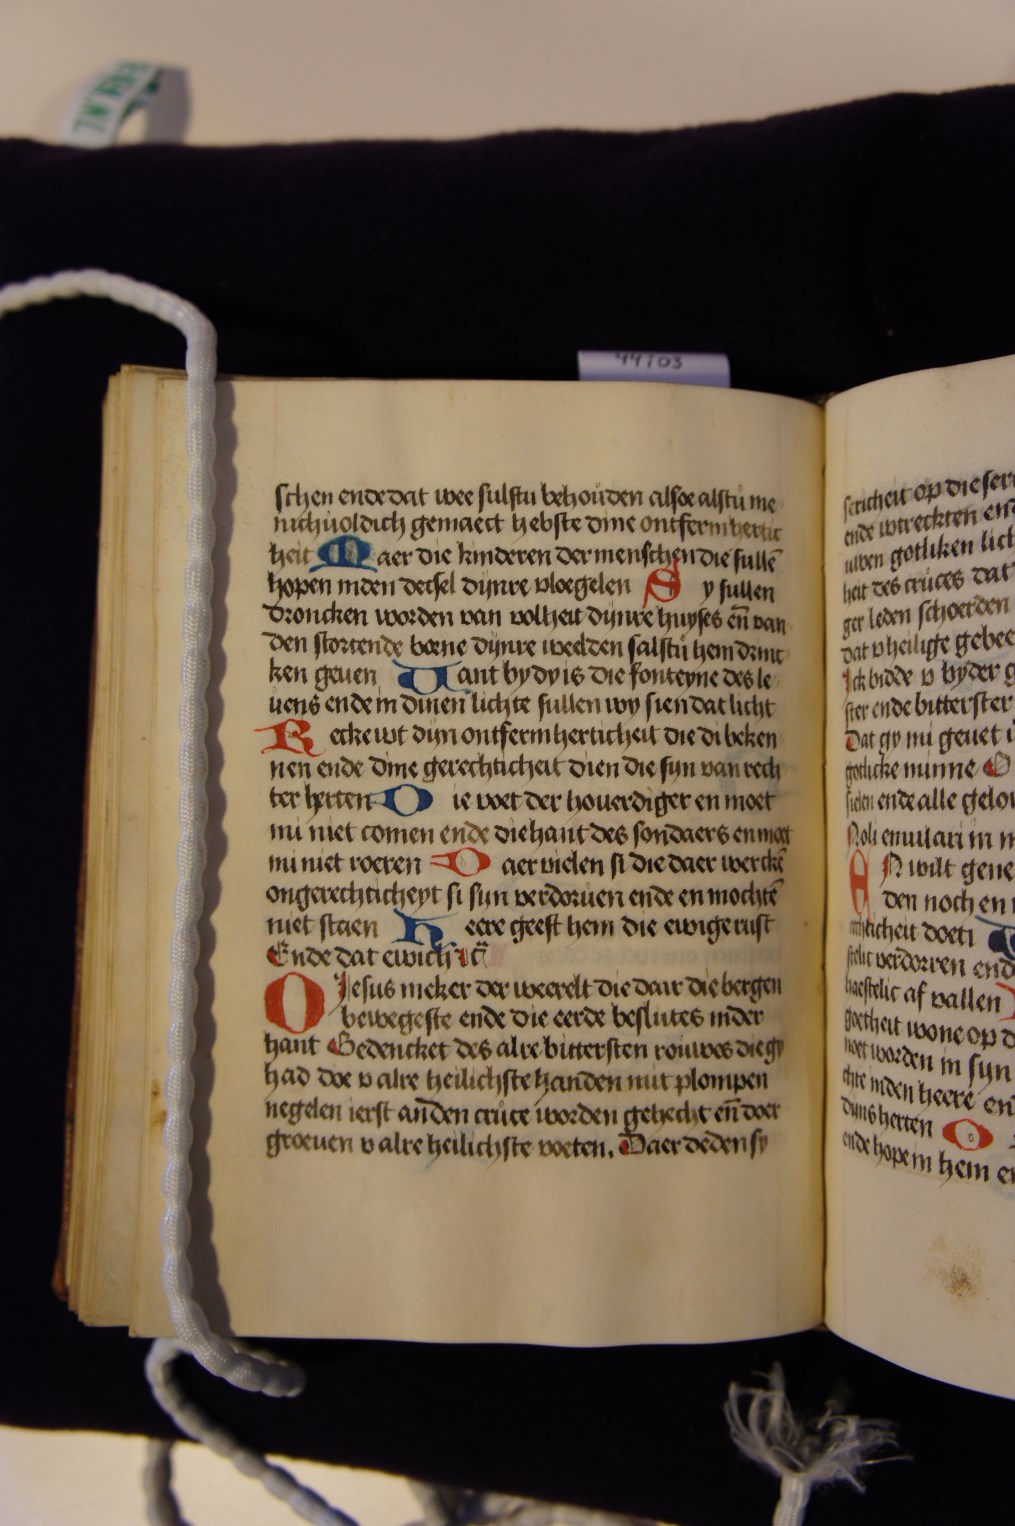 schen ende dat vee sulstu behouden alsoe alstu me
nichuoldich gemaect hebste dine ontfermhertic
heit Maer die kinderen der menschen die sullē
hopen inden decsel dijnre vloegelen Sy sullen
droncken worden van volheit dijnre huyses en̄ van
den stortende borne dijnre weelden salstu hem drinc
ken geuen Want by dy is die fonteyne des le
uens ende in dinen lichte sullen wy sien dat licht
Recke wt dijn ontfermherticheit die di beken
nen ende dine gerechticheit dien die sijn van rech
ter herten Die voet der houerdiger en moet
mi niet comen ende die hant des sondaers en moet
mi niet roeren Daer vielen si die daer werckē
ongerechticheyt si sijn verdoruen ende en mochtē
niet staen Heere geeft hem die ewige rust
Ende dat ewich
O Jesus maker der weerelt die daar die bergen
bewegeste ende die eerde beslutes inder
hant Gedencket des alre bittersten rouwes die gy
had doe v alre heilichste handen mit plompen
negelen ierst anden cruce worden gehecht en̄ doer
groeuen v alre heilichste voeten. Daer deden sy
44703
op die
ende wtreckten
gotliken
heit des cruces dat
ger leden schoerden
dat v heilige
Ick bidde v by der
ster ende bitterster
Dat gy mi geuet
gotlicke minne O
sielen ende alle
Noli emulari in
N wilt
den noch en
ticheit doen
verdorren
haestelic af vallen
goetheit wone op
worden in sijn
inden heere
dijns herten O
ende hope in hem